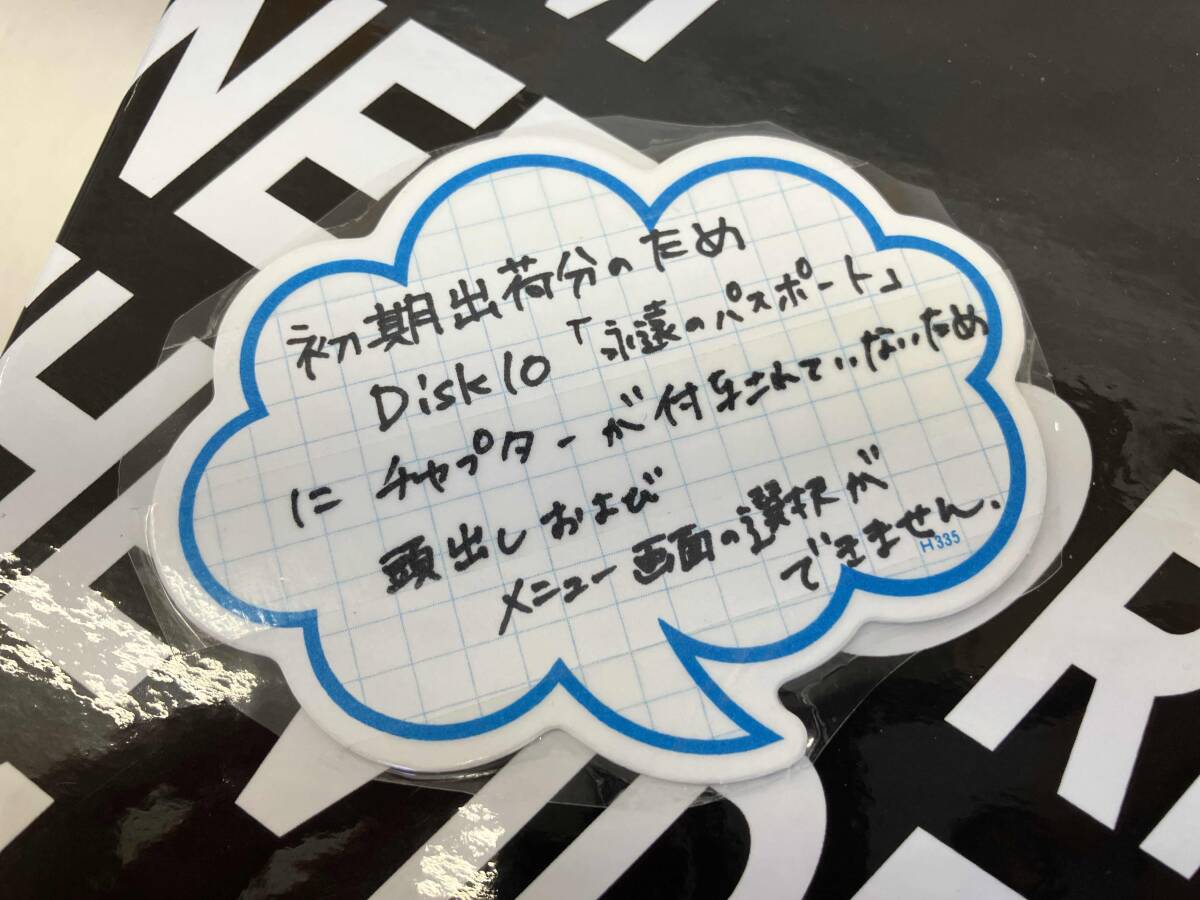 初期出荷分のため
Disk10「永遠のパスポート」
に チャプターが付与されていないため
頭出しおよび
メニュー画面の選択が
できません.
H335